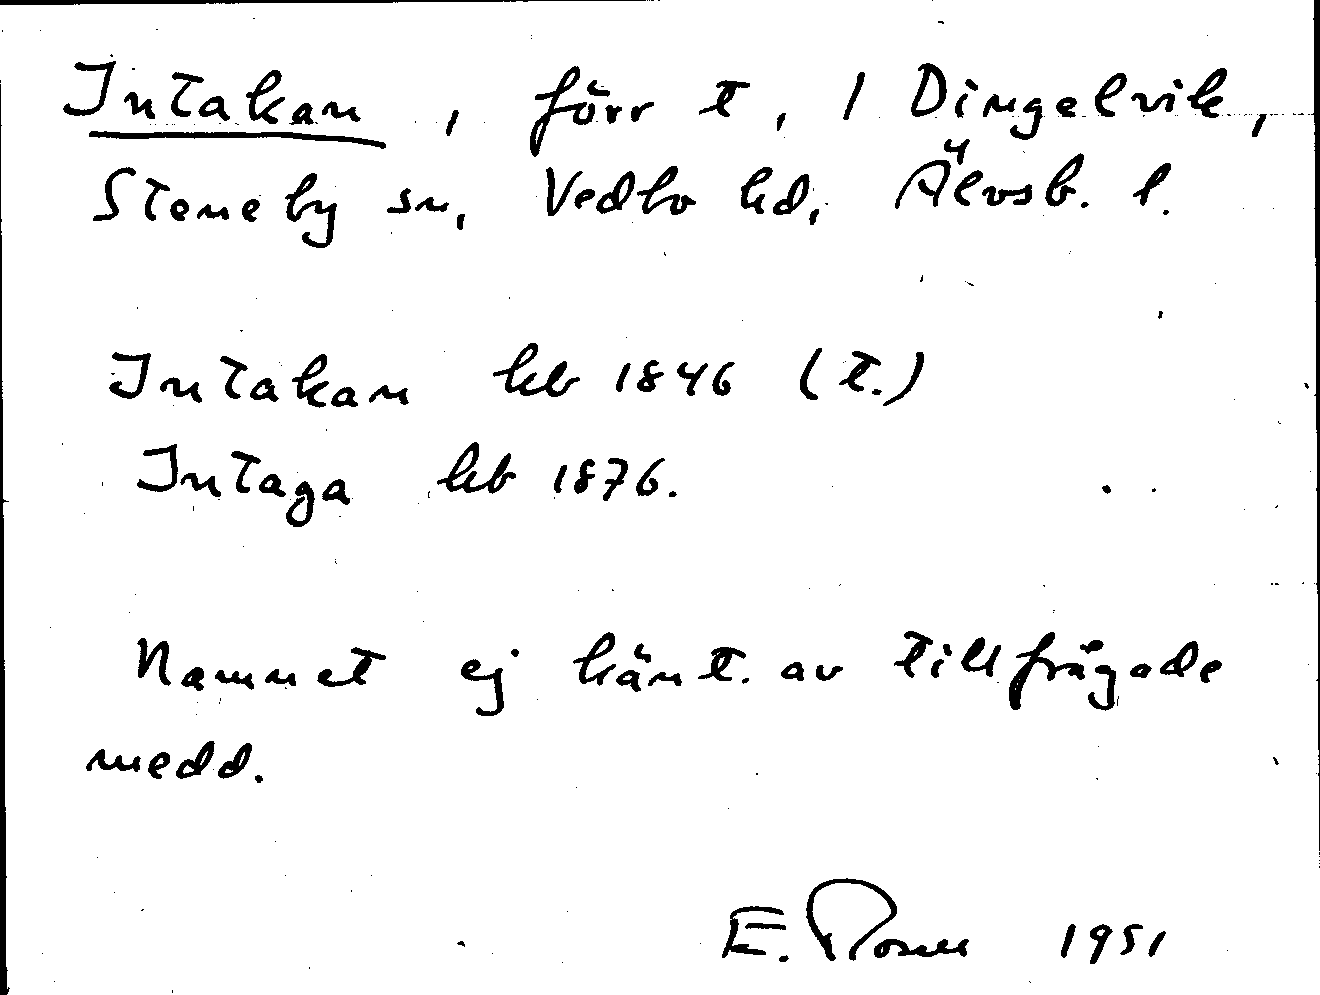 Intakan, förr t, 1 Dingelvik,
Steneby sn, Vedbo hd, Älvsb. l.
Intakan hb 1846 (t.)
Intaga hb 1876.
Namnet ej känt. av tillfrågade
medd.
E. 1951